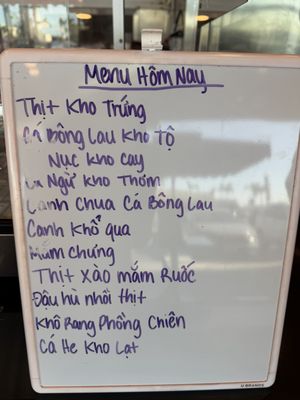 Menu Hôm Nay
Thịt Kho Trứng
Bông Lau Kho Tộ
Nục Kho Cay
Ngừ Kho Thơm
Canh Chua Cá Bông Lau
Canh Khổ qua
Mắm Chưng
Thịt Xào mắm Ruốc
Đậu hủ nhồi thịt
Khô Rang Phồng Chiên
Cá He Kho Lạt
U BRANDS